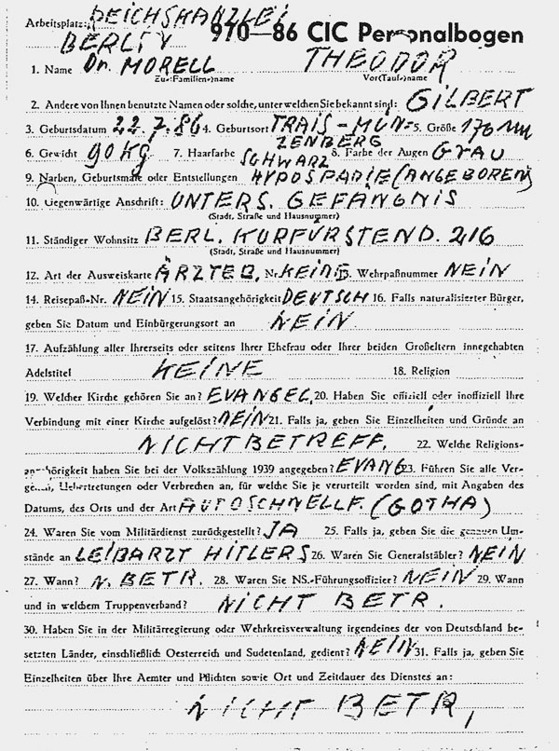 Arbeitsplatz: REICHSKANZLEI
BERLIN 970—86 CIC Personalbogen
1. Name Dr. MORELL THEODOR
Zu-(Familien-)name Vor(Tauf-)name
2. Andere von Ihnen benutzte Namen oder solche, unter welchen Sie bekannt sind: GILBERT
3. Geburtsdatum 22.7.86 4. Geburtsort TRAIS-MÜN= 5. Größe 176
ZENBERG
6. Gewicht 90 Kg 7. Haarfarbe SCHWARZ 8. Farbe der Augen GRAU
9. Narben, Geburtsmale oder Entstellungen HYPOSPADIE (ANGEBOREN)
10. Gegenwärtige Anschrift: UNTERS. GEFÄNGNIS
(Stadt, Straße und Hausnummer)
11. Ständiger Wohnsitz BERL. KURFÜRSTEND. 216
(Stadt, Straße und Hausnummer)
12. Art der Ausweiskarte ÄRZTEB. Nr. KEINE 13. Wehrpaßnummer NEIN
14. Reisepaß-Nr. NEIN 15. Staatsangehörigkeit DEUTSCH 16. Falls naturalisierter Bürger,
geben Sie Datum und Einbürgerungsort an NEIN
17. Aufzählung aller Ihrerseits oder seitens Ihrer Ehefrau oder Ihrer beiden Großeltern innegehabten
Adelstitel KEINE 18. Religion
19. Welcher Kirche gehören Sie an? EVANGEL. 20. Haben Sie offiziell oder inoffiziell Ihre
Verbindung mit einer Kirche aufgelöst? NEIN 21. Falls ja, geben Sie Einzelheiten und Gründe an
NICHT BETREFF. 22. Welche Religions-
angehörigkeit haben Sie bei der Volkszählung 1939 angegeben? EVANG 23. Führen Sie alle Ver-
gehen, Uebertretungen oder Verbrechen an, für welche Sie je verurteilt worden sind, mit Angaben des
Datums, des Orts und der Art AUTOSCHNELLF. (GOTHA)
24. Waren Sie vom Militärdienst zurückgestellt? JA 25. Falls ja, geben Sie die genauen Um-
stände an LEIBARZT HITLERS 26. Waren Sie Generalstäbler? NEIN
27. Wann? N. BETR. 28. Waren Sie NS.-Führungsoffizier? NEIN 29. Wann
und in welchem Truppenverband? NICHT BETR.
30. Haben Sie in der Militärregierung oder Wehrkreisverwaltung irgendeines der von Deutschland be-
setzten Länder, einschließlich Oesterreich und Sudetenland, gedient? NEIN 31. Falls ja, geben Sie
Einzelheiten über Ihre Aemter und Pflichten sowie Ort und Zeitdauer des Dienstes an:
NICHT BETR,